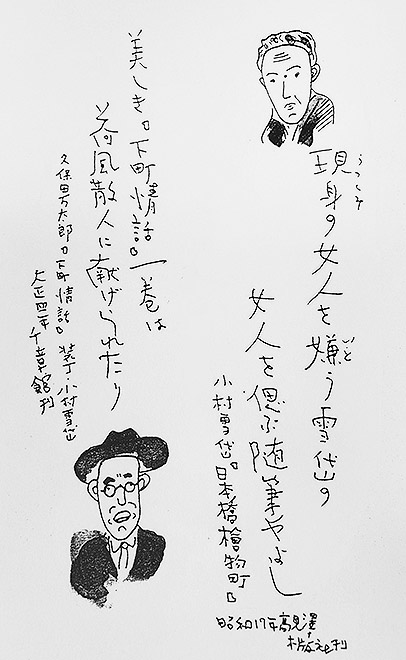 現身の女人を嫌う雪岱の
うつしみ
いと
女人を偲ぶ随筆やよし
小村雪岱『日本橋檜物町』
昭和17年高見澤
木版社刊
美しき『下町情話』一巻は
荷風散人に献げられたり
久保田万太郎『下町情話』装丁小村雪岱
大正四年千章館刊